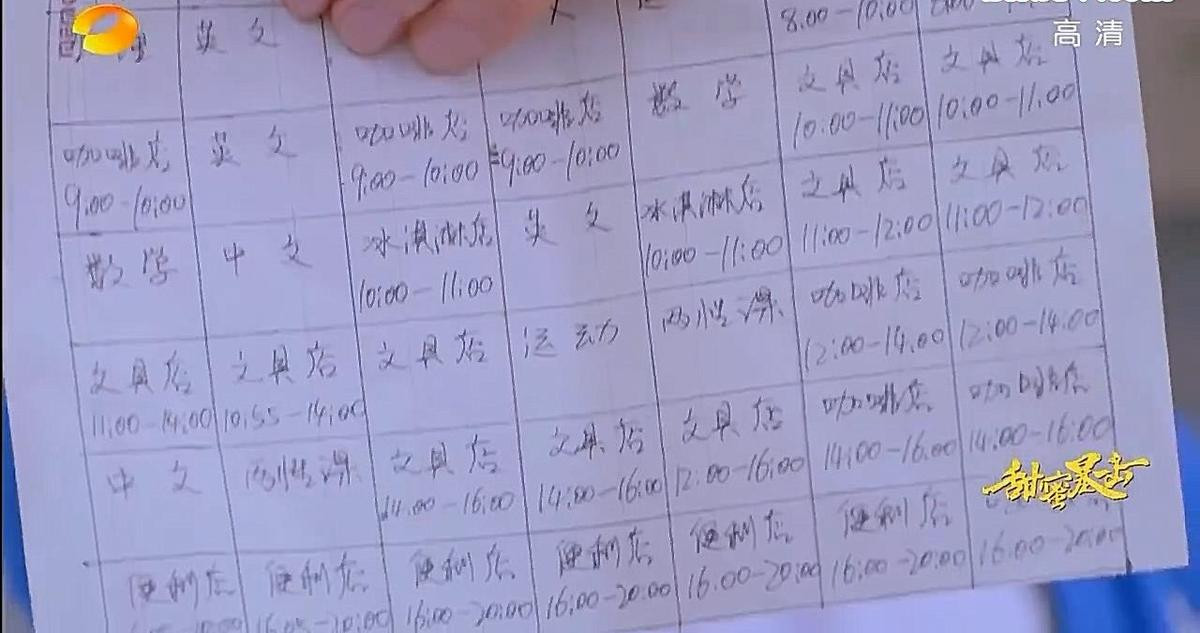 英 文
8:00-10:00
高清
咖啡店 英 文 咖啡店 咖啡店 数 学 文具店 文具店
9:00-10:00 9:00-10:00 9:00-10:00 10:00-11:00 10:00-11:00
数 学 中 文 冰淇淋店 英 文 冰淇淋店 文具店 文具店
10:00-11:00 10:00-11:00 11:00-12:00 11:00-12:00
文具店 文具店 文具店 运 动 两性课 咖啡店 咖啡店
11:00-14:00 10:55-14:00 12:00-14:00 12:00-14:00
中 文 两性课 文具店 文具店 文具店 咖啡店 咖啡店
14:00-16:00 14:00-16:00 12:00-16:00 14:00-16:00 14:00-16:00
甜蜜暴击
便利店 便利店 便利店 便利店 便利店 便利店
16:05-20:00 16:00-20:00 16:00-20:00 16:00-20:00 16:00-20:00 16:00-20:00